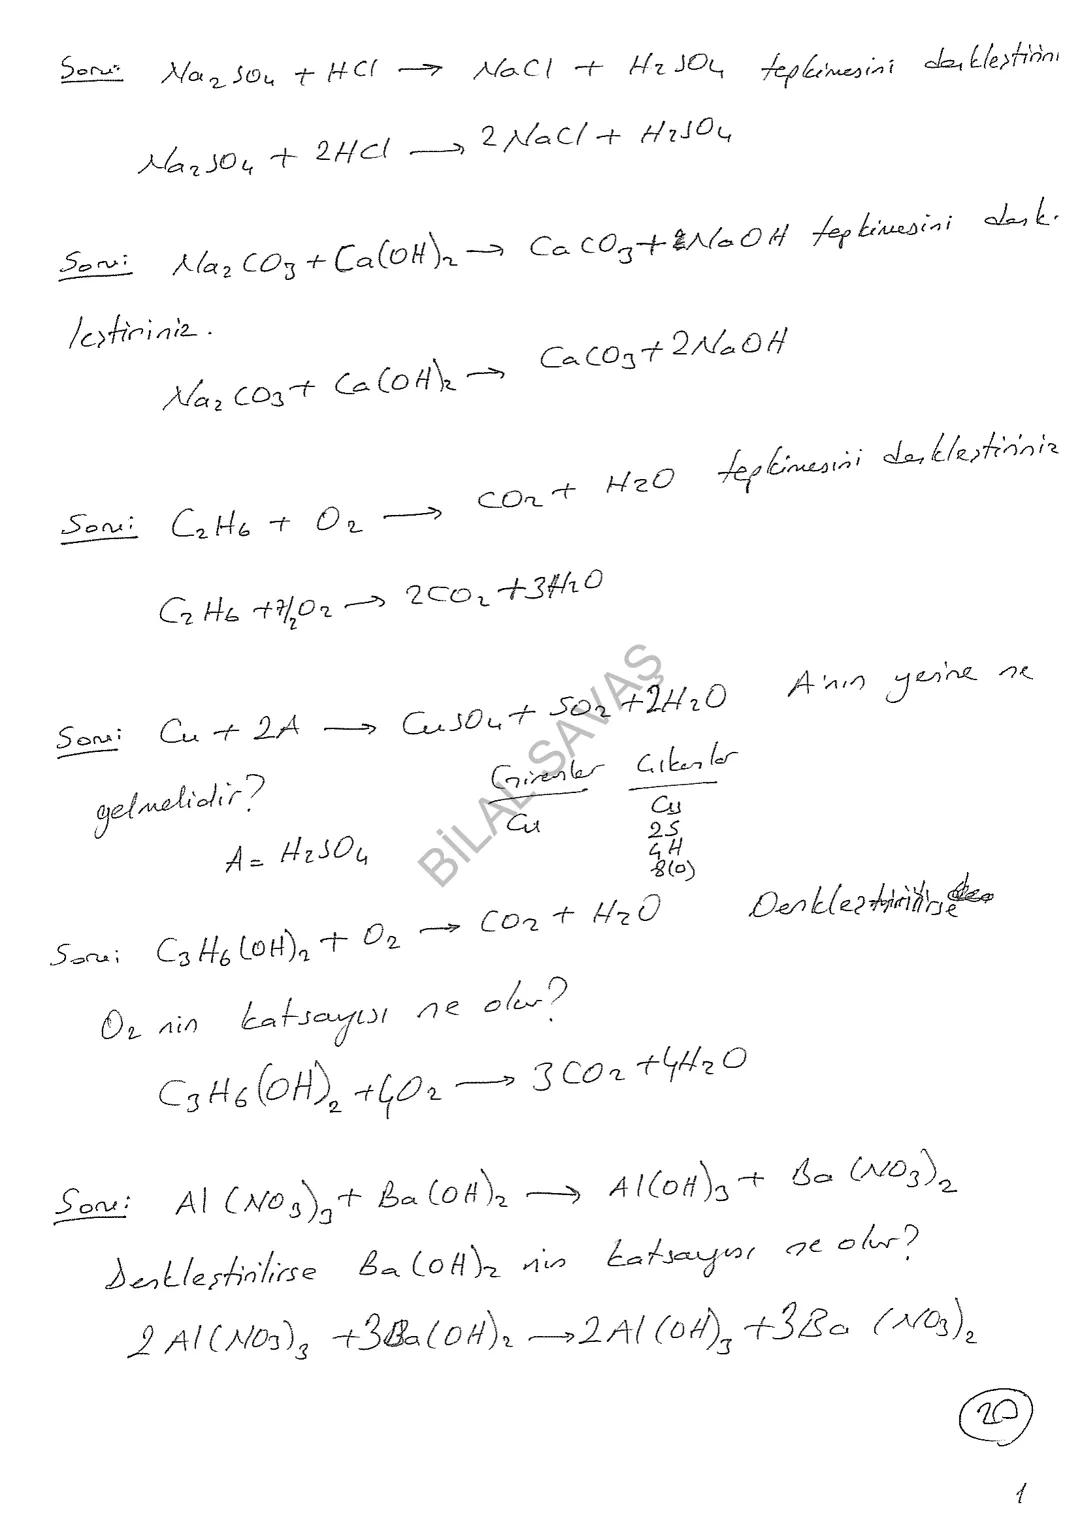 Soru: Na2SO4 + HCl → NaCl + H2SO4 tepkimesini denkleştirini
Na2SO4 + 2HCl → 2NaCl + H2SO4
Soru: Na2CO3 + Ca(OH)2 → CaCO3 + NaOH tepkimesini denk-
leştiriniz.
Na2CO3 + Ca(OH)2 → CaCO3 + 2NaOH
Soru: C2H6 + O2 → CO2 + H2O tepkimesini denkleştiriniz
C2H6 + 7/2O2 → 2CO2 + 3H2O
Soru: Cu + 2A → CuSO4 + SO2 + 2H2O A'nın yerine ne
gelmelidir?
Girenler Çıkanlar
Cu Cu
2S
4H
8(O)
A = H2SO4
BİLAL SAVAŞ
Soru: C3H6(OH)2 + O2 → CO2 + H2O Denkleştirilirse
O2 nin katsayısı ne olur?
C3H6(OH)2 + 4O2 → 3CO2 + 4H2O
Soru: Al(NO3)3 + Ba(OH)2 → Al(OH)3 + Ba(NO3)2
Denkleştirilirse Ba(OH)2 nin katsayısı ne olur?
2Al(NO3)3 + 3Ba(OH)2 → 2Al(OH)3 + 3Ba(NO3)2
20
1